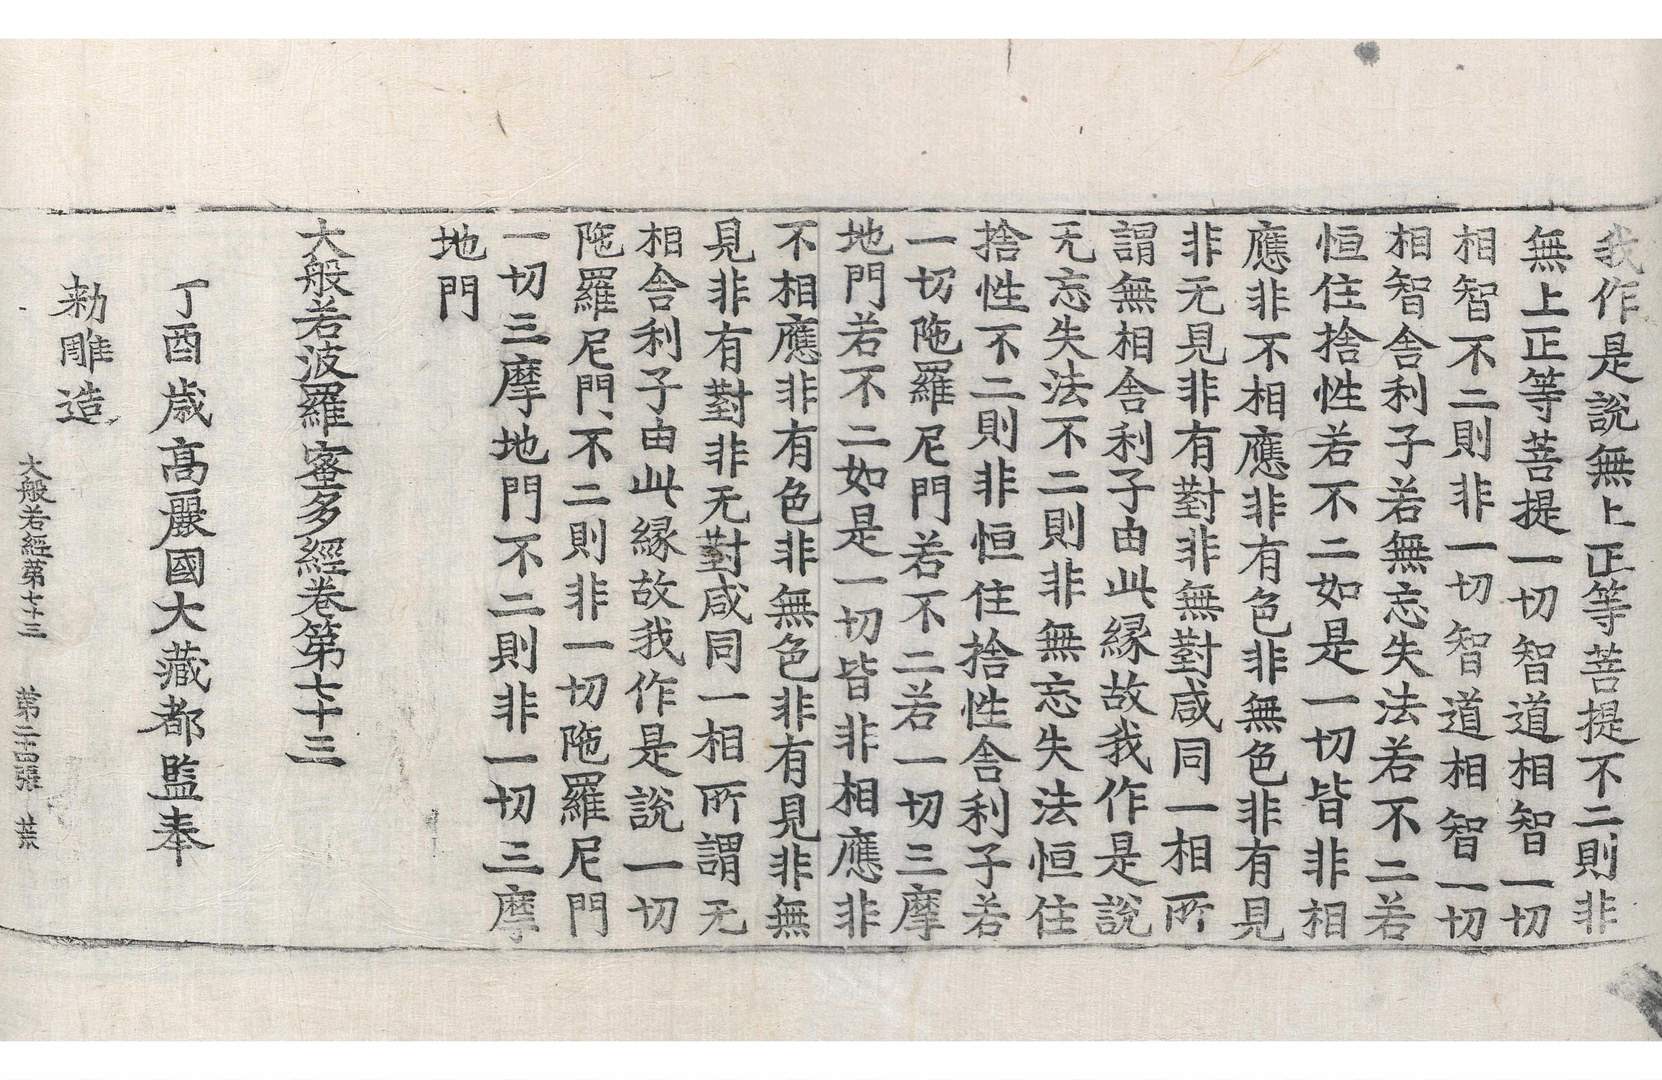 我作是說無上正等菩提不二則非
無上正等菩提一切智道相智一切
相智不二則非一切智道相智一切
相智舍利子若無忘失法若不二若
恒住捨性若不二如是一切皆非相
應非不相應非有色非無色非有見
非无見非有對非無對咸同一相所
謂無相舍利子由此縁故我作是說
无忘失法不二則非無忘失法恒住
捨性不二則非恒住捨性舍利子若
一切陁羅尼門若不二若一切三摩
地門若不二如是一切皆非相應非
不相應非有色非無色非有見非無
見非有對非无對咸同一相所謂无
相舍利子由此縁故我作是說一切
陁羅尼門不二則非一切陁羅尼門
一切三摩地門不二則非一切三摩
地門
大般若波羅蜜多經卷第七十三
丁酉歳高麗國大藏都監奉
勅雕造
大般若經第七十三 第二十四張